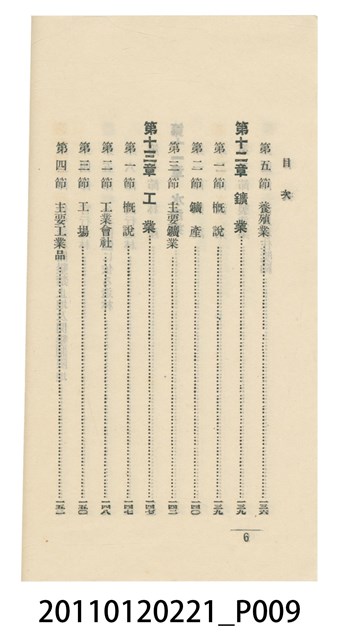 目次
第五節 養殖業……一三六
第十二章 鑛業……一三九
第一節 概說……一三九
第二節 鑛產……一四〇
第三節 主要鑛業……一四二
第十三章 工業……一四七
第一節 概說……一四七
第二節 工業會社……一四八
第三節 工場……一五〇
第四節 主要工業品……一五一
6
20110120221_P009